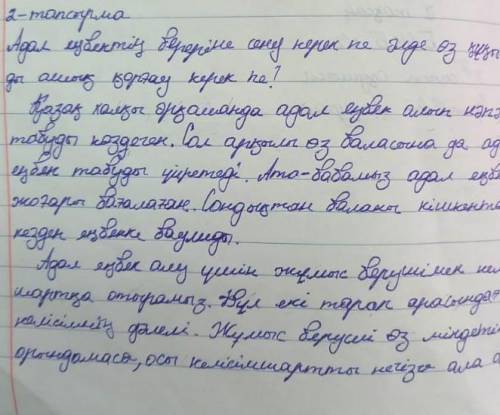 2-тапсырма
Адал еңбектің береріне сену керек пе әлде өз құқы
ды ашық қорғау керек пе?
Қазақ халқы әрқашанда адал еңбек алып нәпа
табуды көздеген. Сол арқылы өз баласына да ад
еңбек табуды үйретеді. Ата-бабамыз адал еңбе
жоғары бағалаған. Сондықтан баланы кішкента
кезден еңбекке баулиды.
Адал еңбек алу үшін жұмыс берушімен кел
шартқа отырамыз. Бұл екі тарап арасындағ
келісімнің дәлелі. Жұмыс беруші өз міндеті
орындамаса, осы келісімшартты негізге ала о